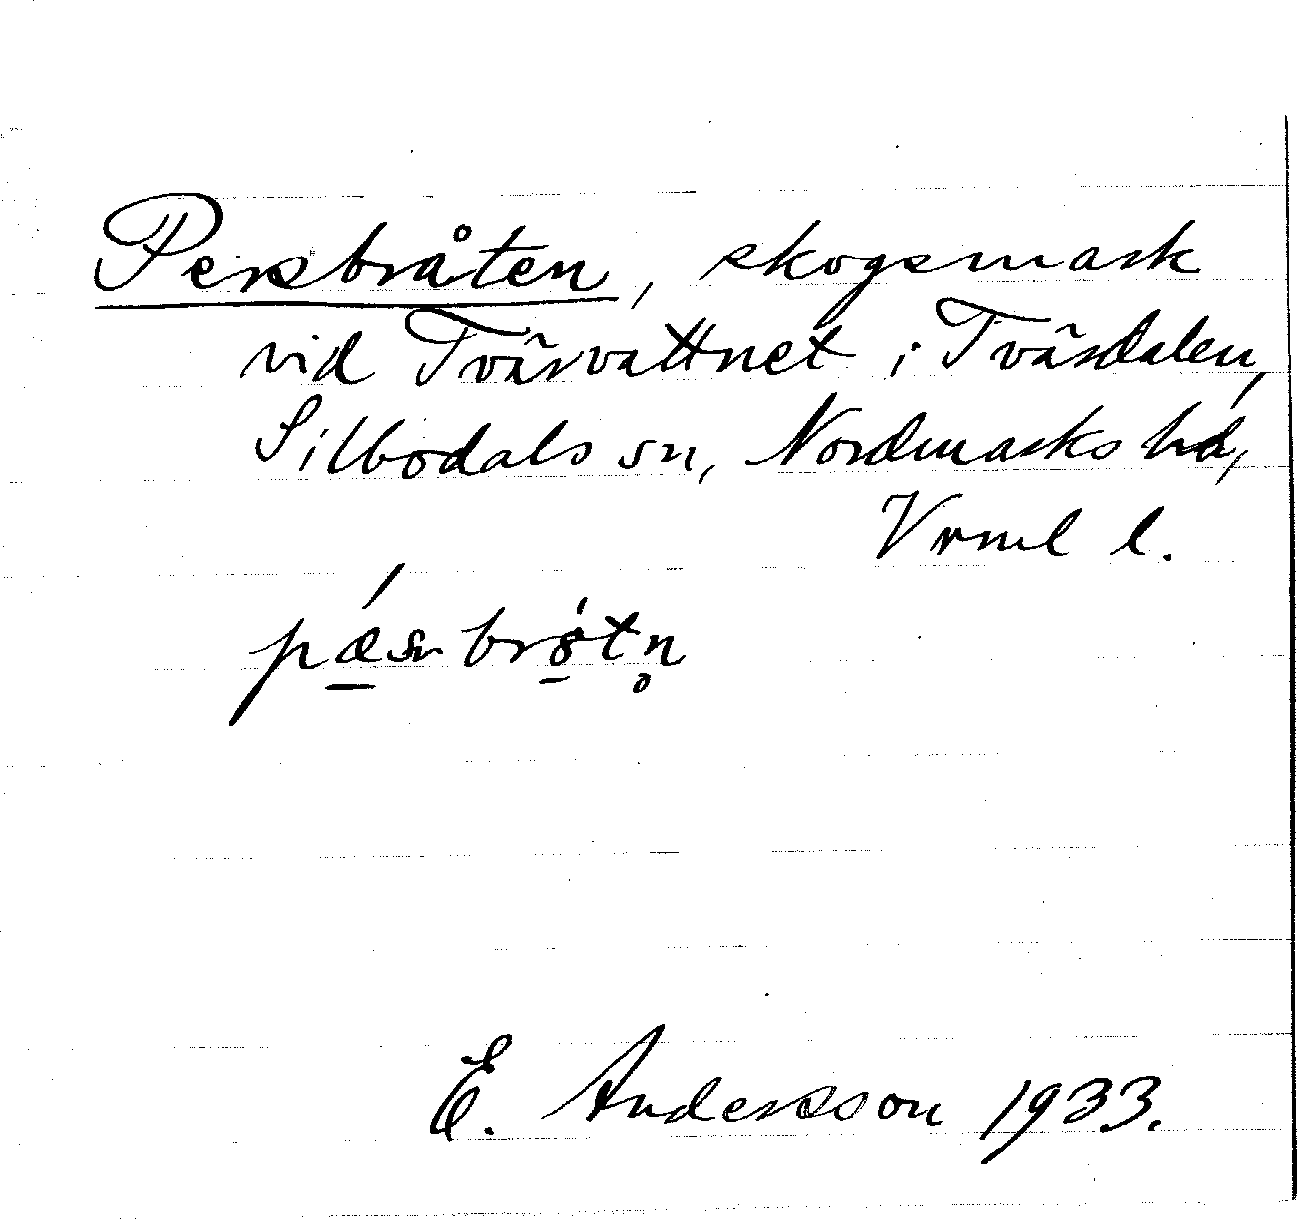 Persbråten, skogsmark
vid Tvärvattnet i Tvärdalen,
Silbodals sn, Nordmarks hd,
Vrml l.
E. Andersson 1933.